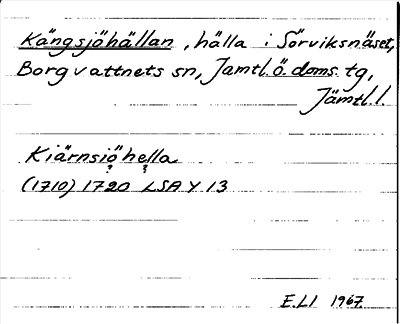 Kängsjöhällan, hälla i Sörviksnäset,
Borgvattnets sn, Jämtl. ö. doms. tg,
Jämtl. l.
Kiärnsiöhella
? ?
(1710) 1720 LSA Y 13
E.LI 1967